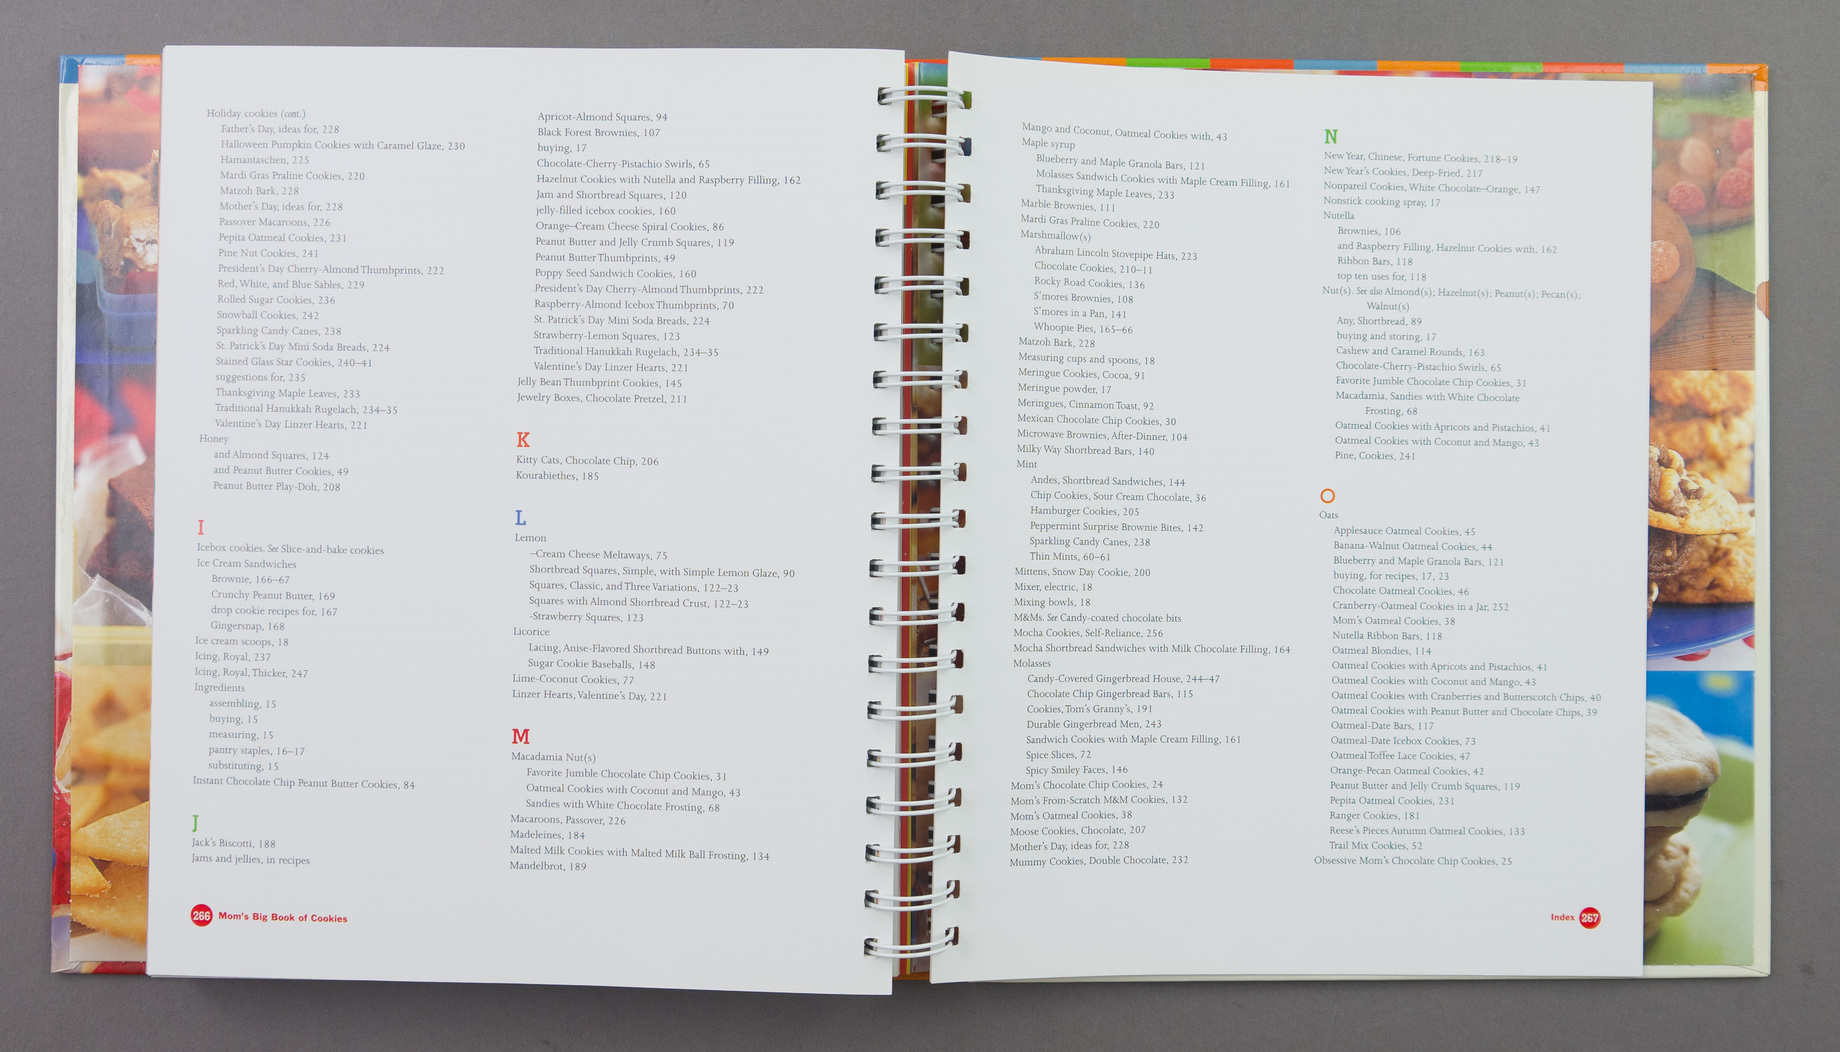 Holiday cookies (cont.)
Father's Day, ideas for, 228
Halloween Pumpkin Cookies with Caramel Glaze, 230
Hamantaschen, 225
Mardi Gras Praline Cookies, 220
Matzoh Bark, 228
Mother's Day, ideas for, 228
Passover Macaroons, 226
Pepita Oatmeal Cookies, 231
Pine Nut Cookies, 241
President's Day Cherry-Almond Thumbprints, 222
Red, White, and Blue Sables, 229
Rolled Sugar Cookies, 236
Snowball Cookies, 242
Sparkling Candy Canes, 238
St. Patrick's Day Mini Soda Breads, 224
Stained Glass Star Cookies, 240–41
suggestions for, 235
Thanksgiving Maple Leaves, 233
Traditional Hanukkah Rugelach, 234–35
Valentine's Day Linzer Hearts, 221
Honey
and Almond Squares, 124
and Peanut Butter Cookies, 49
Peanut Butter Play-Doh, 208
I
Icebox cookies. See Slice-and-bake cookies
Ice Cream Sandwiches
Brownie, 166–67
Crunchy Peanut Butter, 169
drop cookie recipes for, 167
Gingersnap, 168
Ice cream scoops, 18
Icing, Royal, 237
Icing, Royal, Thicker, 247
Ingredients
assembling, 15
buying, 15
measuring, 15
pantry staples, 16–17
substituting, 15
Instant Chocolate Chip Peanut Butter Cookies, 84
J
Jack's Biscotti, 188
Jams and jellies, in recipes
Apricot-Almond Squares, 94
Black Forest Brownies, 107
buying, 17
Chocolate-Cherry-Pistachio Swirls, 65
Hazelnut Cookies with Nutella and Raspberry Filling, 162
Jam and Shortbread Squares, 120
jelly-filled icebox cookies, 160
Orange–Cream Cheese Spiral Cookies, 86
Peanut Butter and Jelly Crumb Squares, 119
Peanut Butter Thumbprints, 49
Poppy Seed Sandwich Cookies, 160
President's Day Cherry-Almond Thumbprints, 222
Raspberry-Almond Icebox Thumbprints, 70
St. Patrick's Day Mini Soda Breads, 224
Strawberry-Lemon Squares, 123
Traditional Hanukkah Rugelach, 234–35
Valentine's Day Linzer Hearts, 221
Jelly Bean Thumbprint Cookies, 145
Jewelry Boxes, Chocolate Pretzel, 211
K
Kitty Cats, Chocolate Chip, 206
Kourabiethes, 185
L
Lemon
–Cream Cheese Meltaways, 75
Shortbread Squares, Simple, with Simple Lemon Glaze, 90
Squares, Classic, and Three Variations, 122–23
Squares with Almond Shortbread Crust, 122–23
-Strawberry Squares, 123
Licorice
Lacing, Anise-Flavored Shortbread Buttons with, 149
Sugar Cookie Baseballs, 148
Lime-Coconut Cookies, 77
Linzer Hearts, Valentine's Day, 221
M
Macadamia Nut(s)
Favorite Jumble Chocolate Chip Cookies, 31
Oatmeal Cookies with Coconut and Mango, 43
Sandies with White Chocolate Frosting, 68
Macaroons, Passover, 226
Madeleines, 184
Malted Milk Cookies with Malted Milk Ball Frosting, 134
Mandelbrot, 189
266 Mom's Big Book of Cookies
Mango and Coconut, Oatmeal Cookies with, 43
Maple syrup
Blueberry and Maple Granola Bars, 121
Molasses Sandwich Cookies with Maple Cream Filling, 161
Thanksgiving Maple Leaves, 233
Marble Brownies, 111
Mardi Gras Praline Cookies, 220
Marshmallow(s)
Abraham Lincoln Stovepipe Hats, 223
Chocolate Cookies, 210–11
Rocky Road Cookies, 136
S'mores Brownies, 108
S'mores in a Pan, 141
Whoopie Pies, 165–66
Matzoh Bark, 228
Measuring cups and spoons, 18
Meringue Cookies, Cocoa, 91
Meringue powder, 17
Meringues, Cinnamon Toast, 92
Mexican Chocolate Chip Cookies, 30
Microwave Brownies, After-Dinner, 104
Milky Way Shortbread Bars, 140
Mint
Andes, Shortbread Sandwiches, 144
Chip Cookies, Sour Cream Chocolate, 36
Hamburger Cookies, 205
Peppermint Surprise Brownie Bites, 142
Sparkling Candy Canes, 238
Thin Mints, 60–61
Mittens, Snow Day Cookie, 200
Mixer, electric, 18
Mixing bowls, 18
M&Ms. See Candy-coated chocolate bits
Mocha Cookies, Self-Reliance, 256
Mocha Shortbread Sandwiches with Milk Chocolate Filling, 164
Molasses
Candy-Covered Gingerbread House, 244–47
Chocolate Chip Gingerbread Bars, 115
Cookies, Tom's Granny's, 191
Durable Gingerbread Men, 243
Sandwich Cookies with Maple Cream Filling, 161
Spice Slices, 72
Spicy Smiley Faces, 146
Mom's Chocolate Chip Cookies, 24
Mom's From-Scratch M&M Cookies, 132
Mom's Oatmeal Cookies, 38
Moose Cookies, Chocolate, 207
Mother's Day, ideas for, 228
Mummy Cookies, Double Chocolate, 232
N
New Year, Chinese, Fortune Cookies, 218–19
New Year's Cookies, Deep-Fried, 217
Nonpareil Cookies, White Chocolate–Orange, 147
Nonstick cooking spray, 17
Nutella
Brownies, 106
and Raspberry Filling, Hazelnut Cookies with, 162
Ribbon Bars, 118
top ten uses for, 118
Nut(s). See also Almond(s); Hazelnut(s); Peanut(s); Pecan(s);
Walnut(s)
Any, Shortbread, 89
buying and storing, 17
Cashew and Caramel Rounds, 163
Chocolate-Cherry-Pistachio Swirls, 65
Favorite Jumble Chocolate Chip Cookies, 31
Macadamia, Sandies with White Chocolate
Frosting, 68
Oatmeal Cookies with Apricots and Pistachios, 41
Oatmeal Cookies with Coconut and Mango, 43
Pine, Cookies, 241
O
Oats
Applesauce Oatmeal Cookies, 45
Banana-Walnut Oatmeal Cookies, 44
Blueberry and Maple Granola Bars, 121
buying, for recipes, 17, 23
Chocolate Oatmeal Cookies, 46
Cranberry-Oatmeal Cookies in a Jar, 252
Mom's Oatmeal Cookies, 38
Nutella Ribbon Bars, 118
Oatmeal Blondies, 114
Oatmeal Cookies with Apricots and Pistachios, 41
Oatmeal Cookies with Coconut and Mango, 43
Oatmeal Cookies with Cranberries and Butterscotch Chips, 40
Oatmeal Cookies with Peanut Butter and Chocolate Chips, 39
Oatmeal-Date Bars, 117
Oatmeal-Date Icebox Cookies, 73
Oatmeal Toffee Lace Cookies, 47
Orange-Pecan Oatmeal Cookies, 42
Peanut Butter and Jelly Crumb Squares, 119
Pepita Oatmeal Cookies, 231
Ranger Cookies, 181
Reese's Pieces Autumn Oatmeal Cookies, 133
Trail Mix Cookies, 52
Obsessive Mom's Chocolate Chip Cookies, 25
Index 267